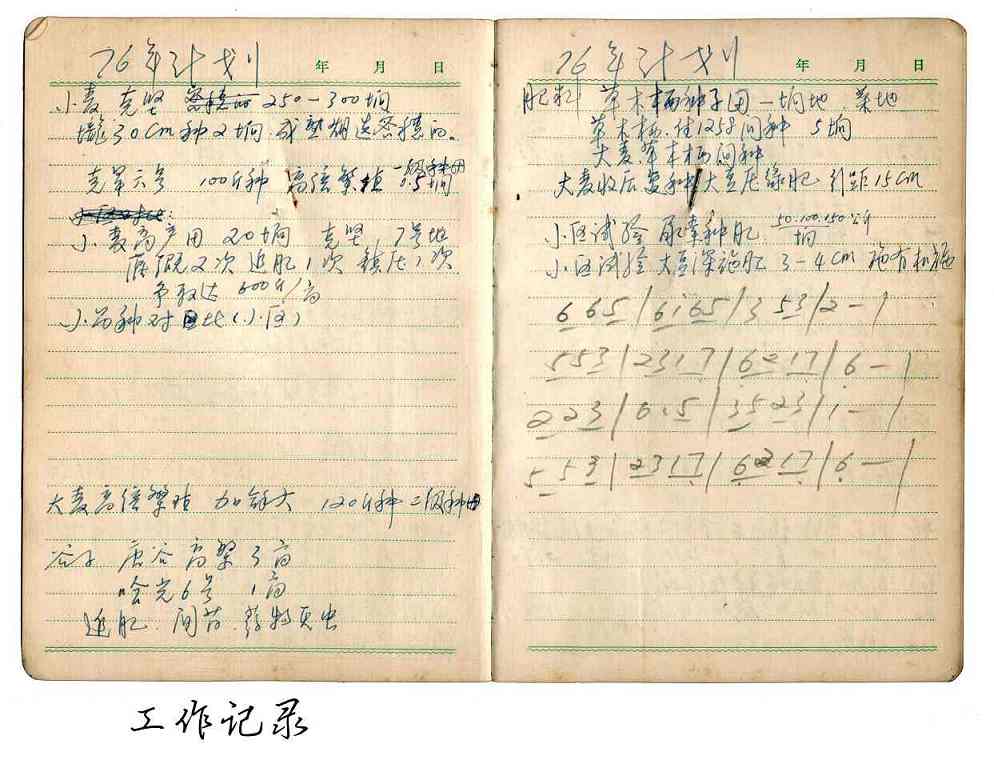 76年计划
年 月 日
小麦 克坚 250-300垧
垅30cm种2垧
克单六号 100斤种 高倍繁殖 一级种田 0.5垧
小麦高产田 20垧 克坚 7号地
2次 追肥1次 镇压1次
争取达 600斤/亩
小品种对比(小区)
大麦高倍繁殖 加拿大 120斤种 二级种田
谷子 唐谷 高繁 3亩
哈克6号 1亩
追肥 间苗 药物灭虫
76年计划
年 月 日
肥料 草木栖种子田 一垧地 菜地
草木栖 间种 5垧
大麦草木栖间种
大麦收后复种大豆压绿肥 引距15cm
小区试验 尿素种肥 50.100.150公斤/垧
小区试验 大豆深施肥 3-4cm 施有机肥
6 65|6i65|3 53|2 - |
553|2317|6217|6 - |
223|6.5|3523|1 - |
553|2317|6217|6 - |
工作记录